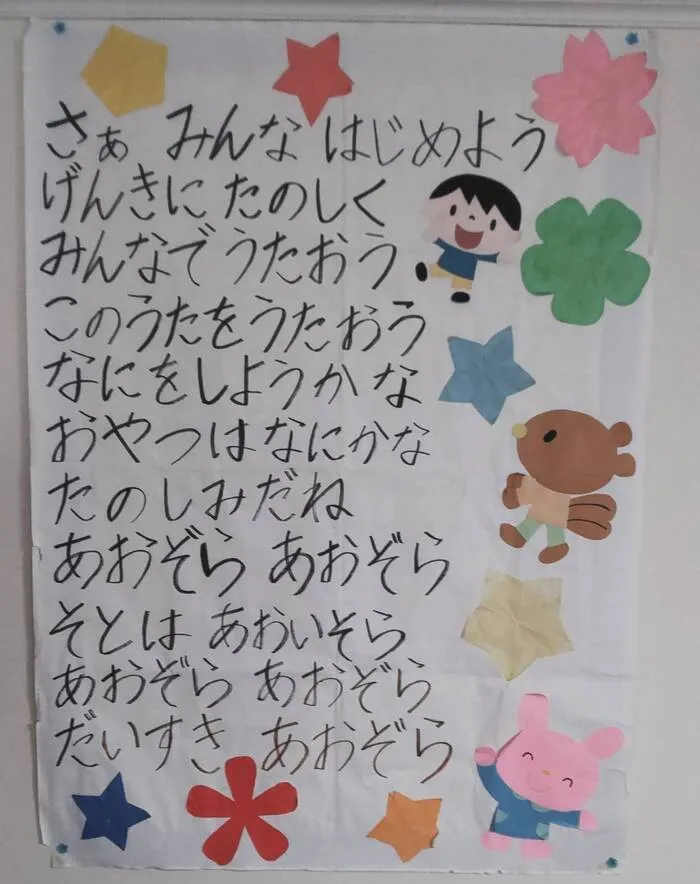 さぁ みんな はじめよう
げんきに たのしく
みんなで うたおう
このうたをうたおう
なにをしようかな
おやつはなにかな
たのしみだね
あおぞら あおぞら
そとは あおいそら
あおぞら あおぞら
だいすき あおぞら